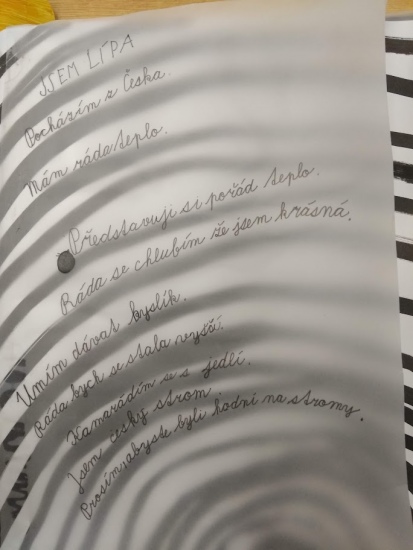 JSEM LÍPA
Pocházím z Česka.
Mám ráda teplo.
Představuji si pořád teplo.
Ráda se chlubím že jsem krásná.
Umím dávat byslík.
Ráda bych se stala vyšší.
Kamarádím se s jedlí.
Jsem český strom.
Prosím, abyste byli hodní na stromy.